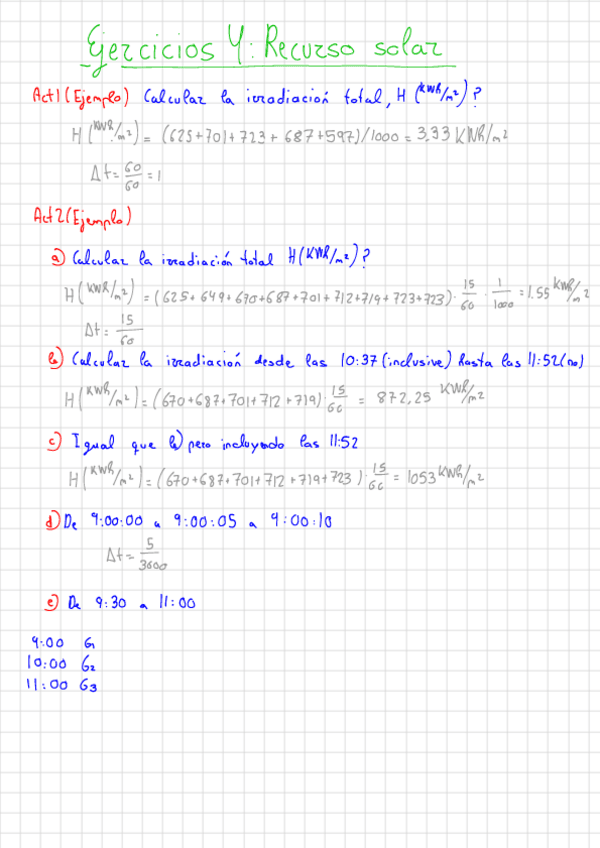 Ejercicios 4: Recurso solar
Act1 (Ejemplo) Calcular la irradiación total, H (kWh/m²)?
H (kWh/m²) = (625+701+723+687+597)/1000 = 3,33 kWh/m²
Δt = 60/60 = 1
Act2 (Ejemplo)
a) Calcular la irradiación total H (kWh/m²)?
H (kWh/m²) = (625+649+670+687+701+712+719+723+723) · 15/60 · 1/1000 = 1.55 kWh/m²
Δt = 15/60
b) Calcular la irradiación desde las 10:37 (inclusive) hasta las 11:52 (no)
H (kWh/m²) = (670+687+701+712+719) · 15/60 = 872,25 kWh/m²
c) Igual que b) pero incluyendo las 11:52
H (kWh/m²) = (670+687+701+712+719+723) · 15/60 = 1053 kWh/m²
d) De 9:00:00 a 9:00:05 a 9:00:10
Δt = 5/3600
e) De 9:30 a 11:00
9:00 G1
10:00 G2
11:00 G3